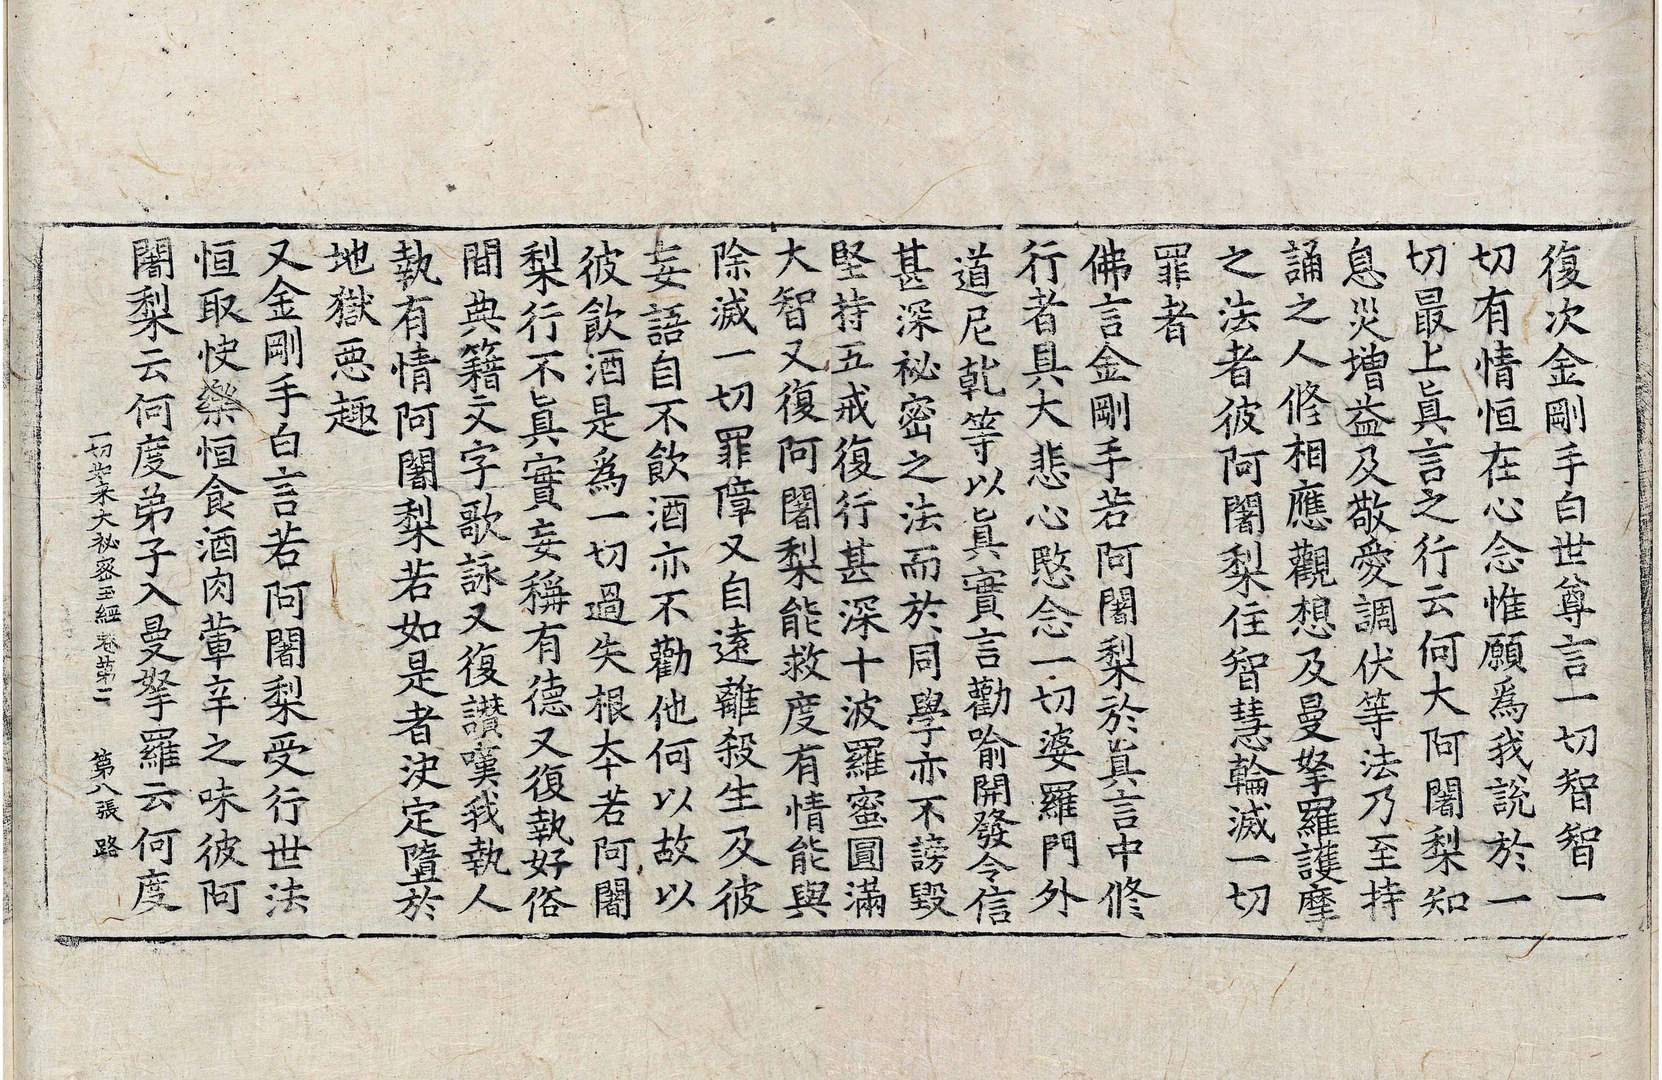 復次金剛手白世尊言一切智智一
切有情恒在心念惟願爲我說於一
切最上眞言之行云何大阿闍梨知
息災增益及敬愛調伏等法乃至持
誦之人修相應觀想及曼拏羅護摩
之法者彼阿闍梨住智慧輪滅一切
罪者
佛言金剛手若阿闍梨於眞言中修
行者具大悲心愍念一切婆羅門外
道尼乾等以眞實言勸喻開發令信
甚深祕密之法而於同學亦不謗毀
堅持五戒復行甚深十波羅蜜圓滿
大智又復阿闍梨能救度有情能與
除滅一切罪障又自遠離殺生及彼
妄語自不飮酒亦不勸他何以故以
彼飮酒是爲一切過失根本若阿闍
梨行不眞實妄稱有德又復執好俗
間典籍文字歌詠又復讃嘆我執人
執有情阿闍梨若如是者決定墮於
地獄惡趣
又金剛手白言若阿闍梨受行世法
恒取快樂恒食酒肉葷辛之味彼阿
闍梨云何度弟子入曼拏羅云何度
一切如來大祕密王經卷第二 第八張 路